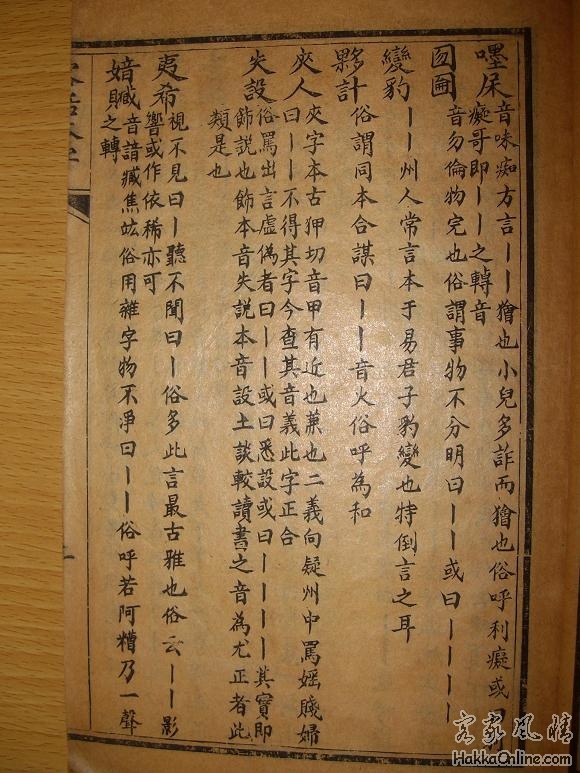 嚜㡿音味痴方言丨丨獪也小兒多詐而獪也俗呼利癡或曰
癡哥即丨丨之轉音
囫圇音勿倫物完也俗謂事物不分明曰丨丨或曰丨丨丨丨
變豹丨丨州人常言本于易君子豹變也特倒言之耳
夥計俗謂同本合謀曰丨丨音火俗呼為和
夾人夾字本古狎切音甲有近也蒹也二義向疑州中罵婬賤婦
曰丨丨不得其字今查其音義此字正合
失設俗罵出言虛偽者曰丨丨或曰悉設或曰丨丨丨丨其實即
飾説也飾本音失説本音設土談較讀書之音為尤正者此
類是也
夷希視不見曰丨聽不聞曰丨俗多此言最古雅也俗云丨丨影
響或作依稀亦可
音諳臧焦竑俗用雜字物不淨曰丨丨俗呼若阿糟乃一聲
之轉
客家風情
HakkaOnline.com